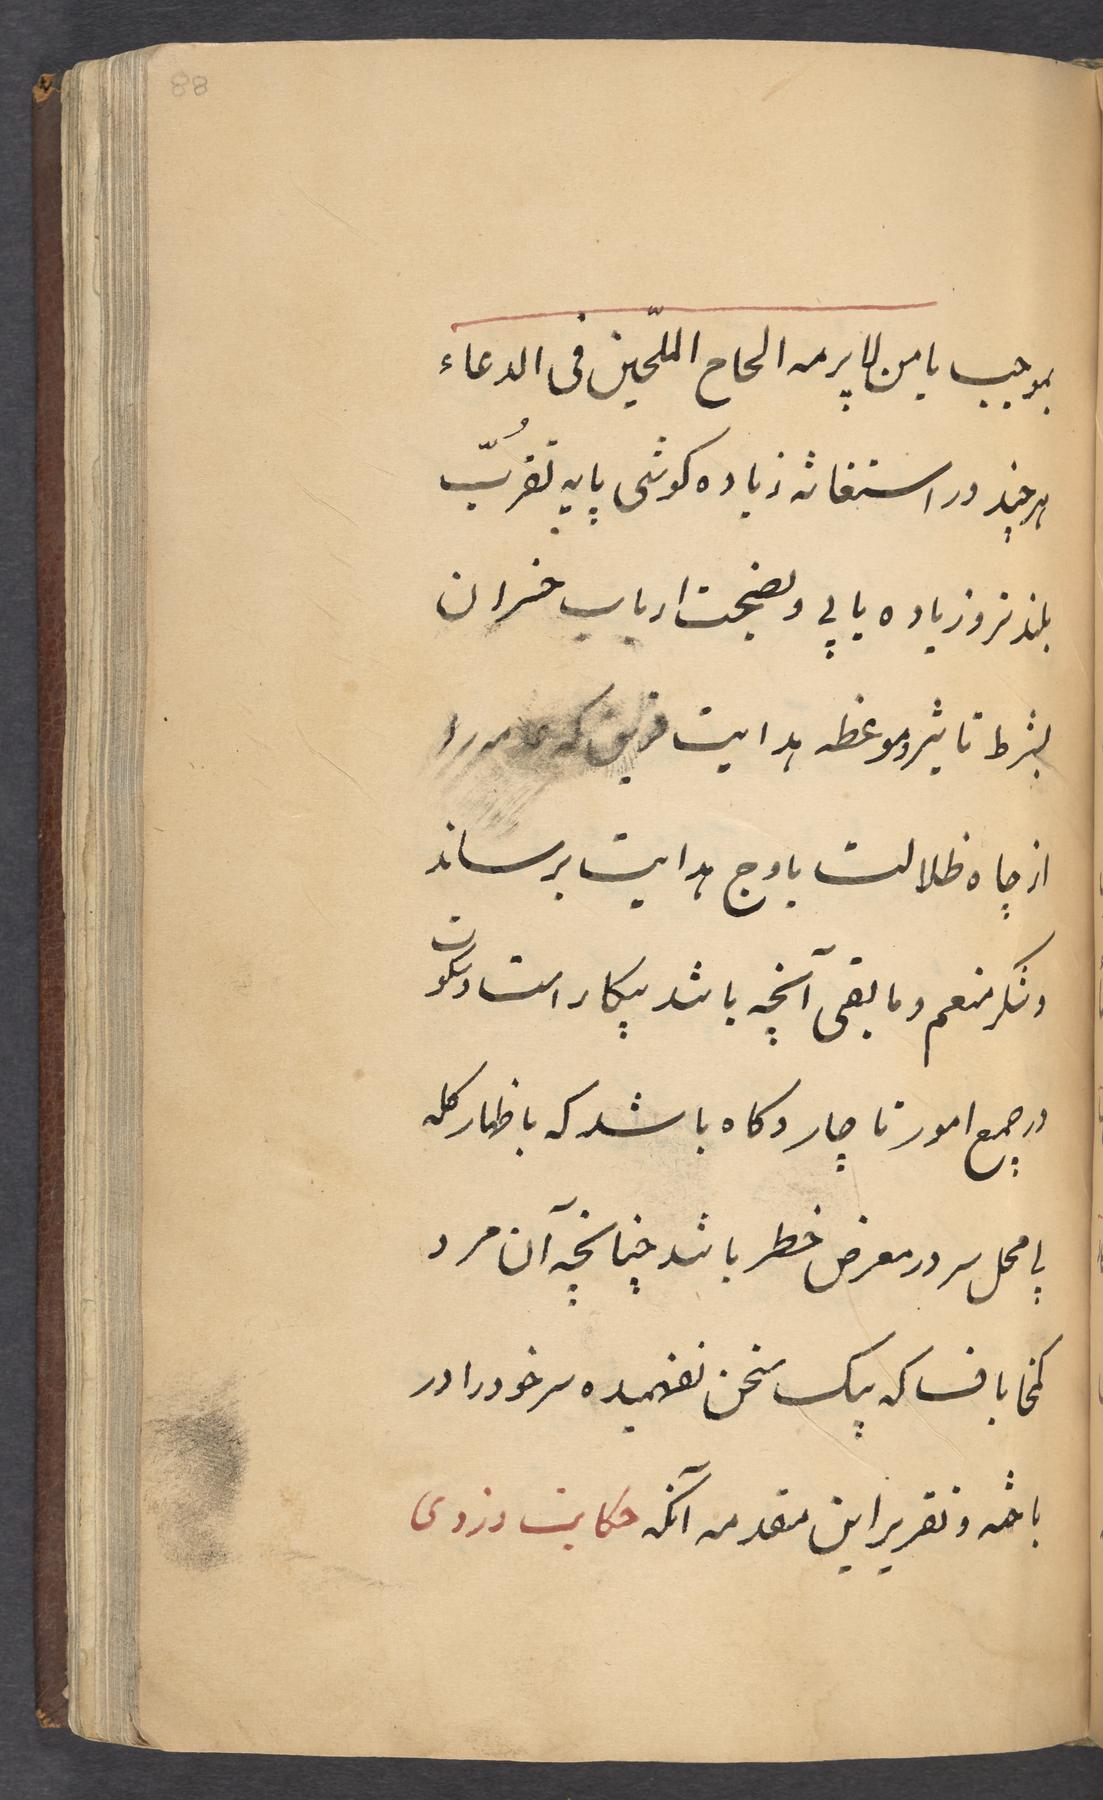 88
بموجب یا من لا یبرمه الحاح الملحّین فی الدعاء
هرچند در استغاثه زیاده کوشی پایه تقرُّب
بلندتر و زیاده یابی و نصیحت ارباب خسران
بشرط تاثیر و موعظه هدایت که را
از چاه ظلالت باوج هدایت برساند
و شکر منعم و مابقی آنچه باشد بیکار است و سکون
در جمیع امور ناچار و کاه باشد که باظهار کله
بی محل سر در معرض خطر باشد چنانچه آن مرد
کمخا باف که بیک سخن نفهمیده سر خود را در
باخته و تقریر این مقدمه آنکه حکایت دزدی